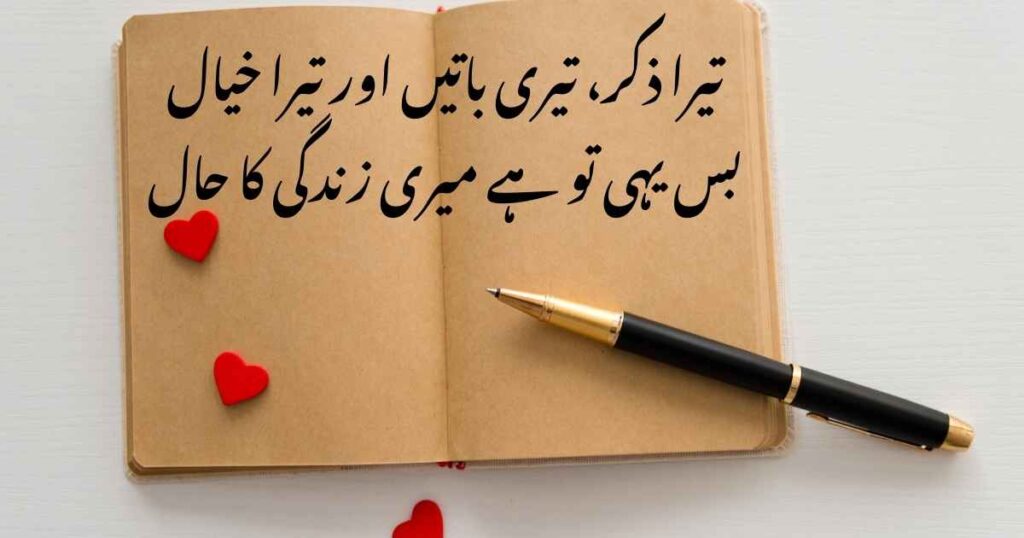 تیرا ذکر، تیری باتیں اور تیرا خیال
بس یہی تو ہے میری زندگی کا حال